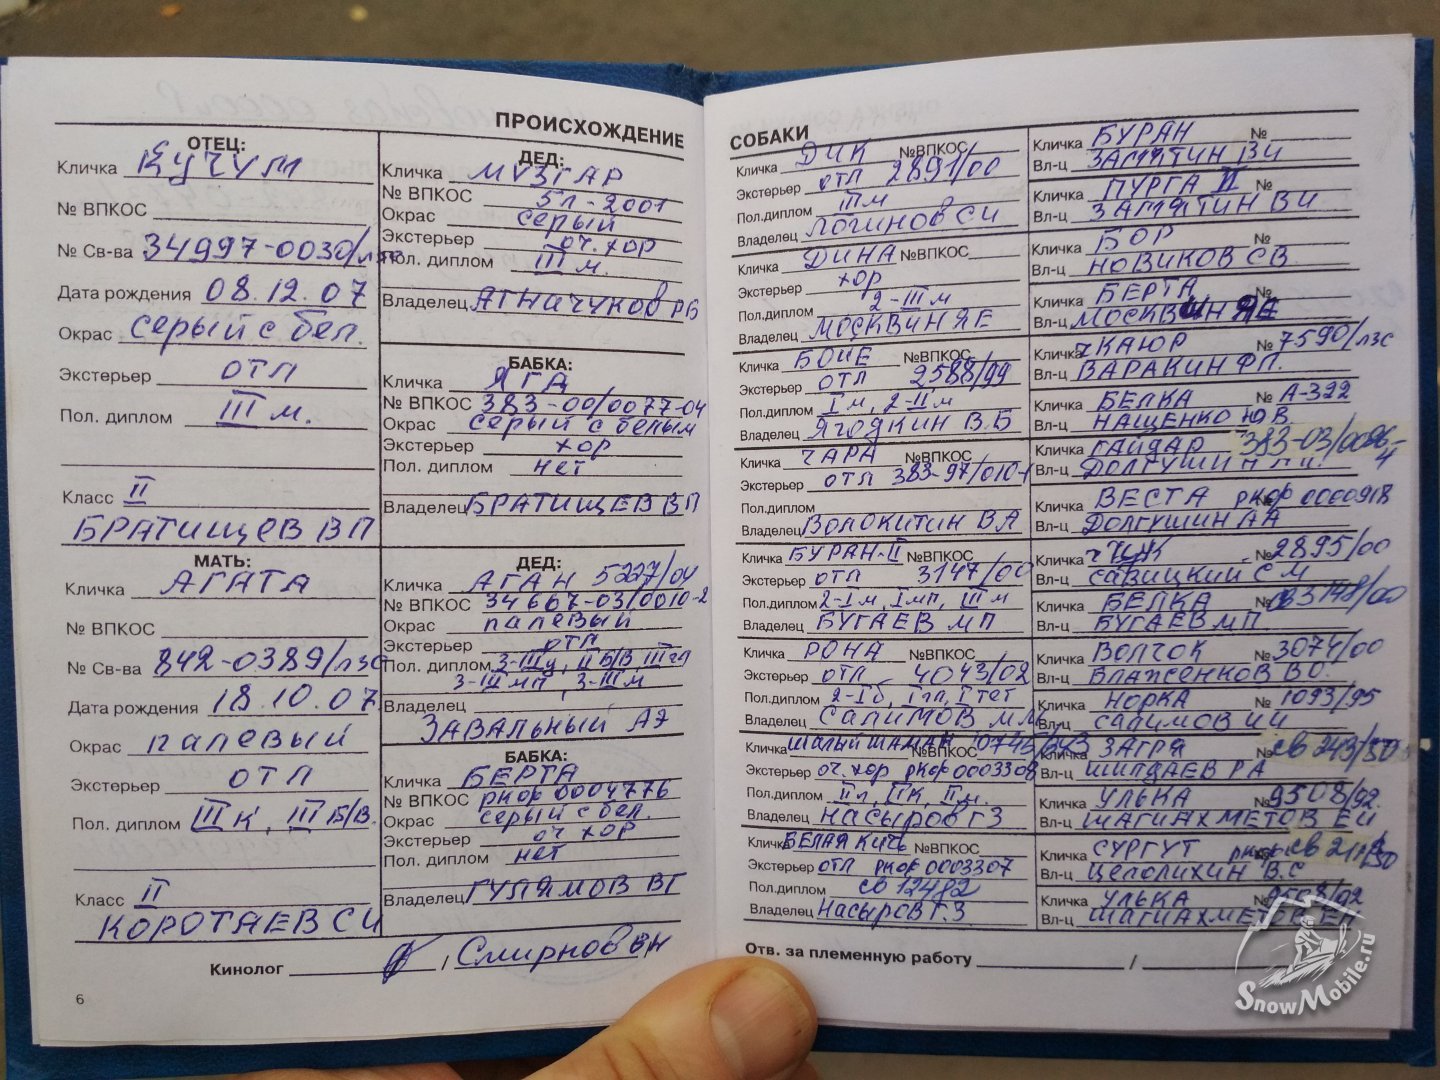 ПРОИСХОЖДЕНИЕ
ОТЕЦ:
Кличка КУЧУМ
№ ВПКОС
№ Св-ва 34997-0030/лзс
Дата рождения 08.12.07
Окрас серый с бел.
Экстерьер отл
Пол. диплом III м.
Класс II
БРАТИЩЕВ ВП
МАТЬ:
Кличка АГАТА
№ ВПКОС
№ Св-ва 842-0389/лзс
Дата рождения 18.10.07
Окрас палевый
Экстерьер отл
Пол. диплом III К, III Б/В.
Класс II
КОРОТАЕВ СИ
ДЕД:
Кличка МУЗГАР
№ ВПКОС 5л-2001
Окрас серый
Экстерьер оч. хор
Пол. диплом III м.
Владелец АГНАЧУКОВ РВ
БАБКА:
Кличка ЯГА
№ ВПКОС 383-00/0077-04
Окрас серый с белым
Экстерьер хор
Пол. диплом нет
Владелец БРАТИЩЕВ ВП
ДЕД:
Кличка АГАН 5227/04
№ ВПКОС 34667-03/0010-2
Окрас палевый
Экстерьер отл
Пол. диплом 3-III у, II Б/В, III гл
3-III мп, 3-III м
Владелец
ЗАВАЛЬНЫЙ АЭ
БАБКА:
Кличка БЕРТА
№ ВПКОС ркор 0004776
Окрас серый с бел.
Экстерьер оч хор
Пол. диплом нет
Владелец ГУЛЯМОВ ВГ
Кинолог / Смирнов ВН
6
СОБАКИ
Кличка ДИК №ВПКОС
Экстерьер отл 2891/00
Пол.диплом III м
Владелец ЛОГИНОВ СИ
Кличка ДИНА №ВПКОС
Экстерьер хор
Пол.диплом 2-III м
Владелец МОСКВИН ЯЕ
Кличка БОЦЕ №ВПКОС
Экстерьер отл 2588/99
Пол.диплом I м, 2-II м
Владелец ЯГОДКИН В.Б
Кличка ЧАРА №ВПКОС
Экстерьер отл 383-97/010-1
Пол.диплом
Владелец ВОЛОКИТИН ВА
Кличка БУРАН-II №ВПКОС
Экстерьер отл 3147/00
Пол.диплом 2-I м, I мп, III м
Владелец БУГАЕВ МП
Кличка РОНА №ВПКОС
Экстерьер отл 4043/02
Пол.диплом 2-I б, I гл, I тет
Владелец САЛИМОВ ИИ
Кличка ШАЛЫЙ ШАМАН №ВПКОС
Экстерьер оч. хор ркор 0003308
Пол.диплом II л, II К, II м.
Владелец НАСЫРОВ Г З
Кличка БЕЛАЯ КИЧЬ №ВПКОС
Экстерьер отл ркор 0003307
Пол.диплом св 12482
Владелец НАСЫРОВ Г.З
Отв. за племенную работу /
Кличка БУРАН №
Вл-ц ЗАМЯТИН ВИ
Кличка ПУРГА II №
Вл-ц ЗАМЯТИН ВИ
Кличка БОР №
Вл-ц НОВИКОВ СВ
Кличка БЕРТА №
Вл-ц МОСКВИН ЯЕ
Кличка ч КАЮР № 7590/лзс
Вл-ц ВАРАКИН ФП.
Кличка БЕЛКА № А-322
Вл-ц НАЩЕНКО Ю.В.
Кличка ГАЙДАР 383-03/0096-4
Вл-ц ДОЛГУШИН
Кличка ВЕСТА ркор 0000918
Вл-ц ДОЛГУШИН АА
Кличка ч ЧИЖ № 2895/00
Вл-ц САВИЦКИЙ С М
Кличка БЕЛКА № 3148/00
Вл-ц БУГАЕВ МП
Кличка ВОЛЧОК № 3074/00
Вл-ц ВЛАЖЕНКОВ ВО.
Кличка НОРКА № 1093/95
Вл-ц САЛИМОВ ИИ
Кличка ЗАГРЯ № св 243/50
Вл-ц ШИЛДАЕВ РА
Кличка УЛЬКА № 9508/92.
Вл-ц ШАГИАХМЕТОВ ЕИ
Кличка СУРГУТ ркор св
Вл-ц ЦЕПОЛИХИН В.С
Кличка УЛЬКА № 9508/92
Вл-ц ШАГИАХМЕТОВ ЕИ
SnowMobile.ru